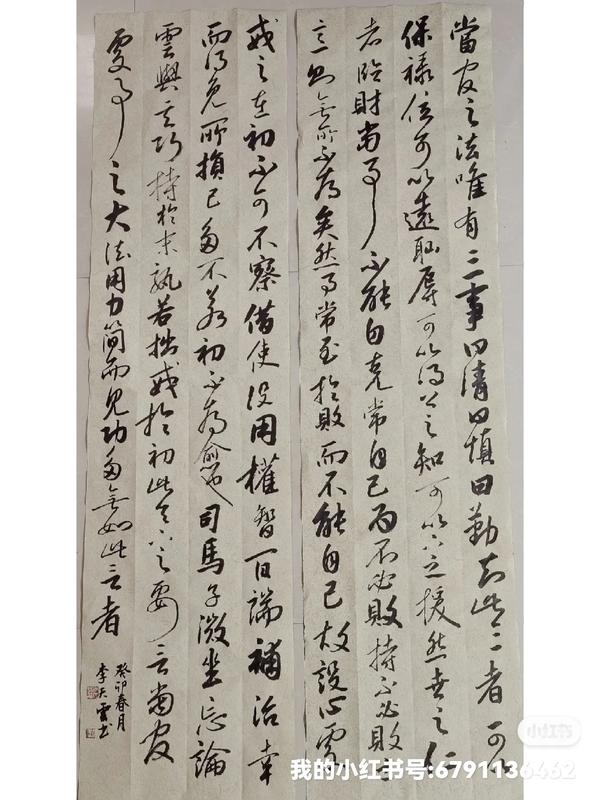 當官之法唯有三事曰清曰慎曰勤知此三者可以
保祿位可以遠恥辱可以得上之知可以下之援然世之仕
者臨財當事不能自克常自己為不必敗持不必敗之
意則無所不為矣然事常至於敗而不能自己故設心處
戒之在初不可不察借使役用權智百端補治幸
而得免所損已多不若初不為愈也司馬子微坐忘論
雲與其巧持於末孰若拙戒於初此天下之要言當官
處事之大法用力簡而見功多無如此言者
癸卯春月
李天雲书
小红书
我的小红书号:6791136462